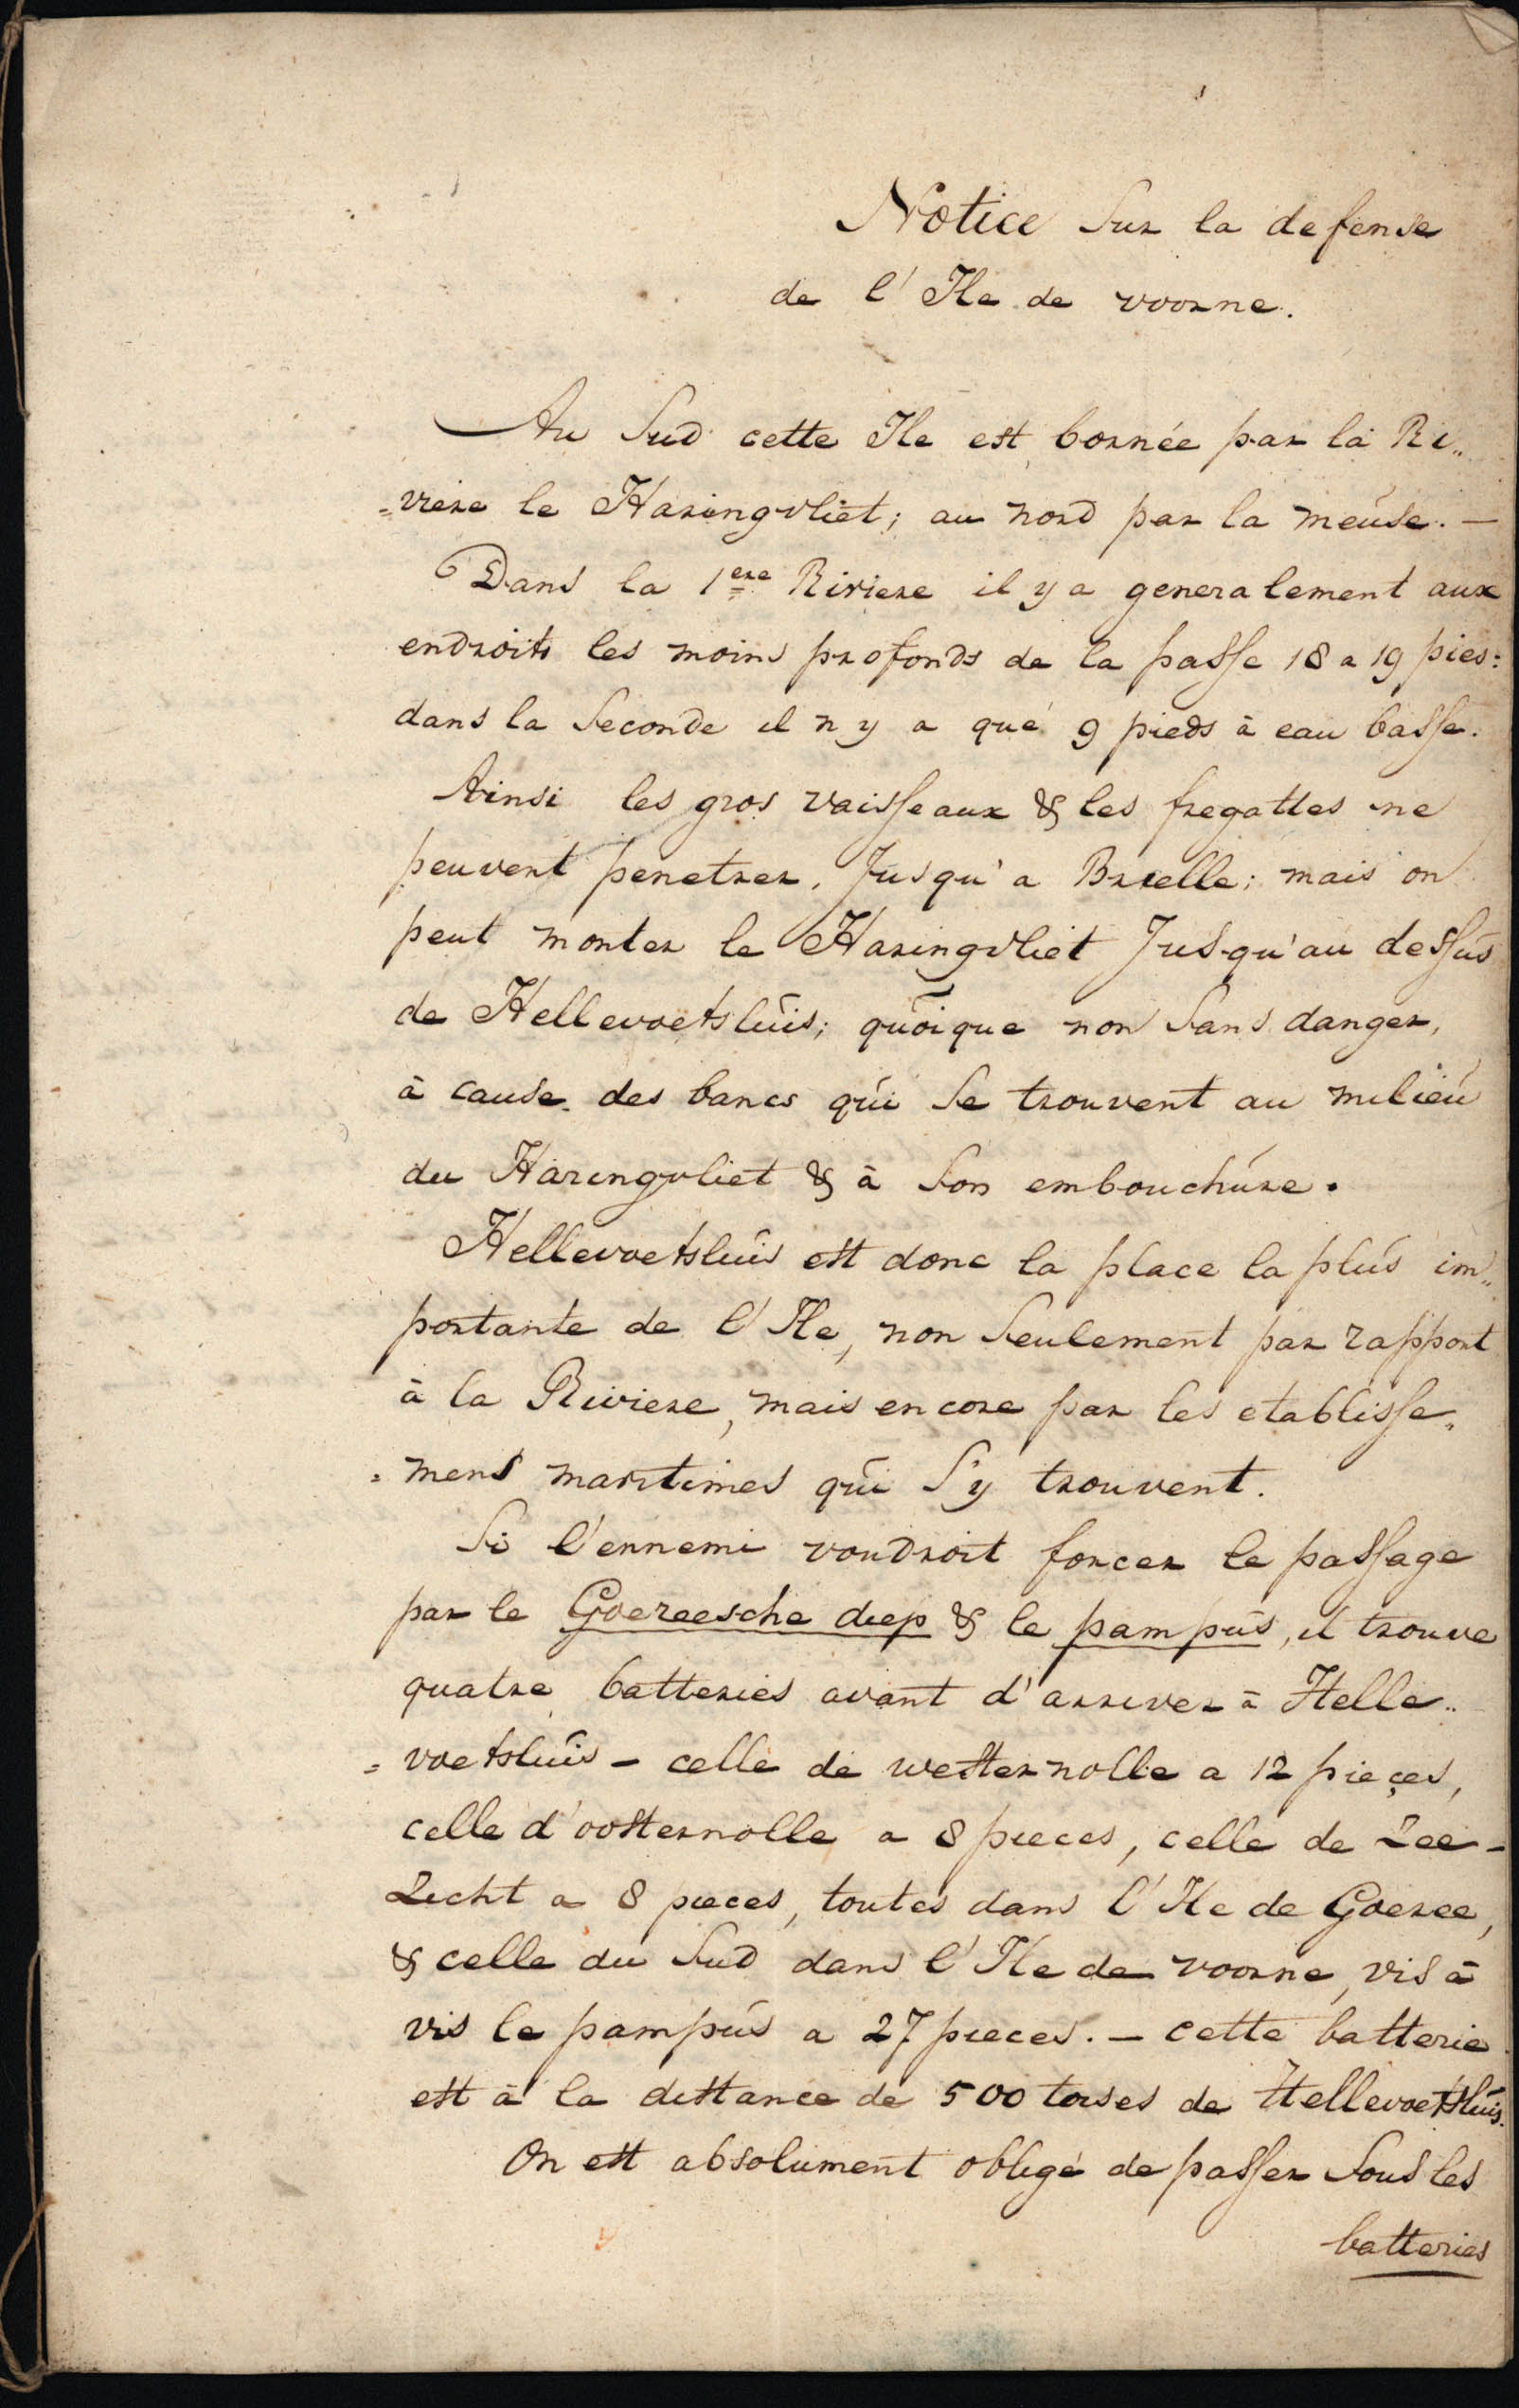 Notice Sur la defense
de l'Ile de voorne.
Au Sud cette Ile est bornée par la Ri„
„viere le Haringvliet; au nord par la meuse. —
Dans la 1ere Riviere il y a generalement aux
endroits les moins profonds de la passe 18 a 19 pies:
dans la Seconde il n y a que 9 pieds à eau basse.
Ainsi les gros vaisseaux & les fregattes ne
peuvent penetrer, Jusqu'a Brielle; mais on
peut monter le Haringvliet Jusqu'au dessus
de Hellevoetsluis; quoique non Sans danger,
à cause des bancs qui Se trouvent au milieu
du Haringvliet & à Son embouchure.
Hellevoetsluis est donc la place la plus im„
portante de l'Ile, non Seulement par rapport
à la Riviere, mais encore par les etablisse„
„mens maritimes qui S'y trouvent.
Si l'ennemi voudroit forcer le passage
par le Goereesche diep & le pampus, il trouve
quatre batteries avant d'arriver à Helle„
„voetsluis – celle de westernolle a 12 pieçes,
celle d'oosternolle a 8 pieces, celle de Zee–
Zicht a 8 pieces, toutes dans l'Ile de Goeree,
& celle du Sud dans l'Ile de voorne, vis à
vis le pampus a 27 pieces. – cette batterie
est à la distance de 500 toises de Hellevoetsluis.
On est absolument obligé de passer Sous les
batteries